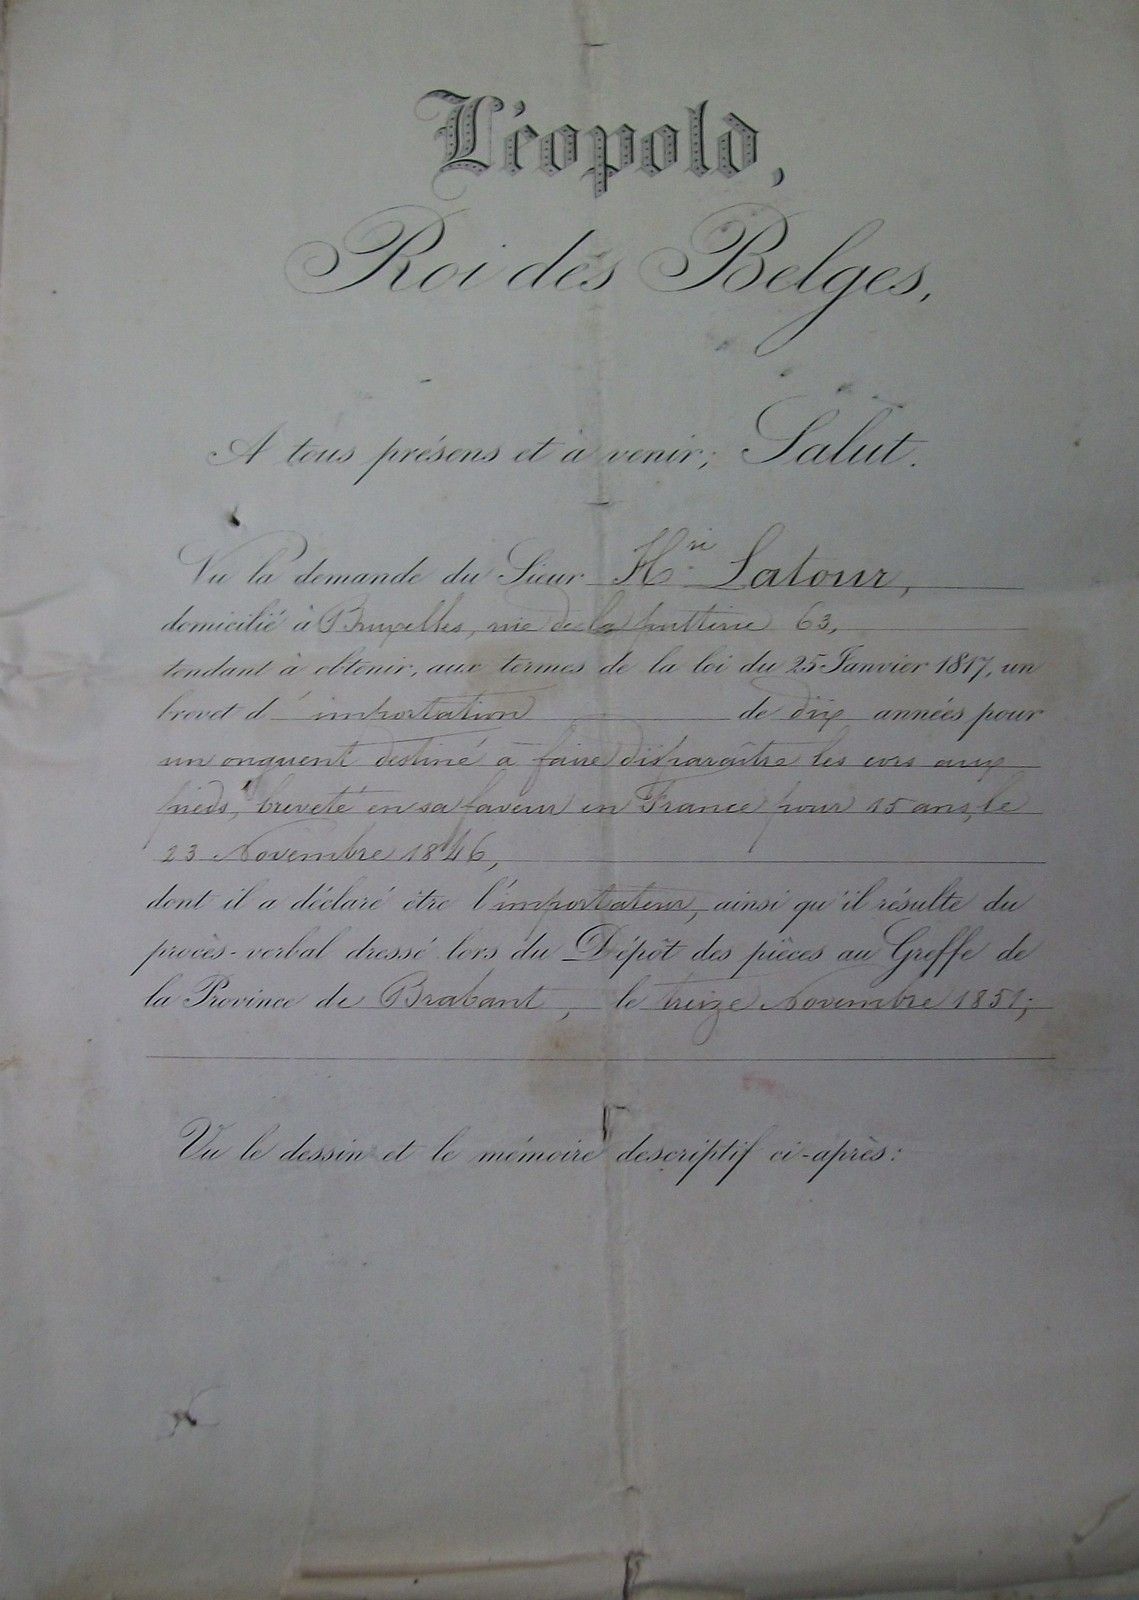 Léopold,
Roi des Belges,
A tous présens et à venir; Salut.
Vu la demande du Sieur Hri Latour,
domicilié à Bruxelles, rue de la putterie 63,
tendant à obtenir, aux termes de la loi du 25 Janvier 1817, un
brevet d'importation de dix années pour
un onguent destiné à faire disparaître les cors aux
pieds, breveté en sa faveur en France pour 15 ans, le
23 Novembre 1846,
dont il a déclaré être l'importateur, ainsi qu'il résulte du
procès-verbal dressé lors du Dépôt des pièces au Greffe de
la Province de Brabant, le treize Novembre 1851;
Vu le dessin et le mémoire descriptif ci-après: